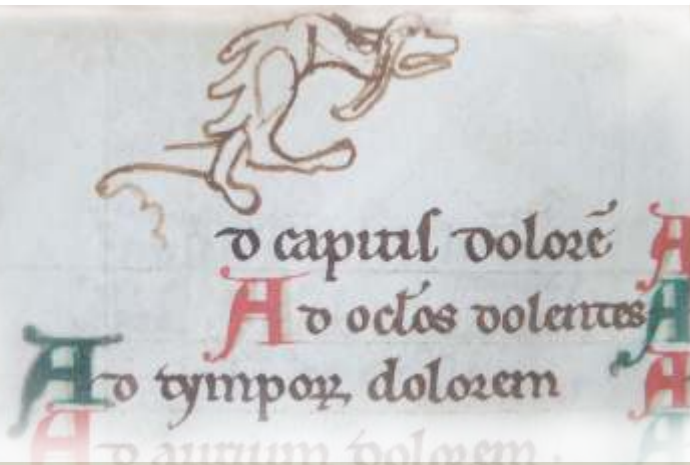 d capitis dolorē
Ad oclōs dolentes
Ad tympoꝝ dolorem
Ad aurium dolorem.